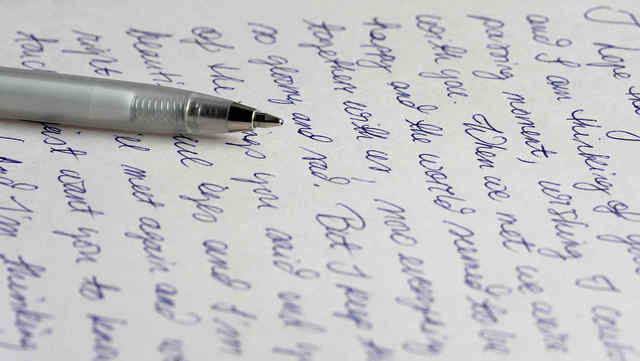 I hope
and I am thinking of you
passing moment, wishing I could
with you. When we met we were
happy and the world seemed to be
together with us, now everything
so gloomy and sad. But I keep
of the you said and
eyes and I'm
right will meet again and
just want you to know
And I'm thinking